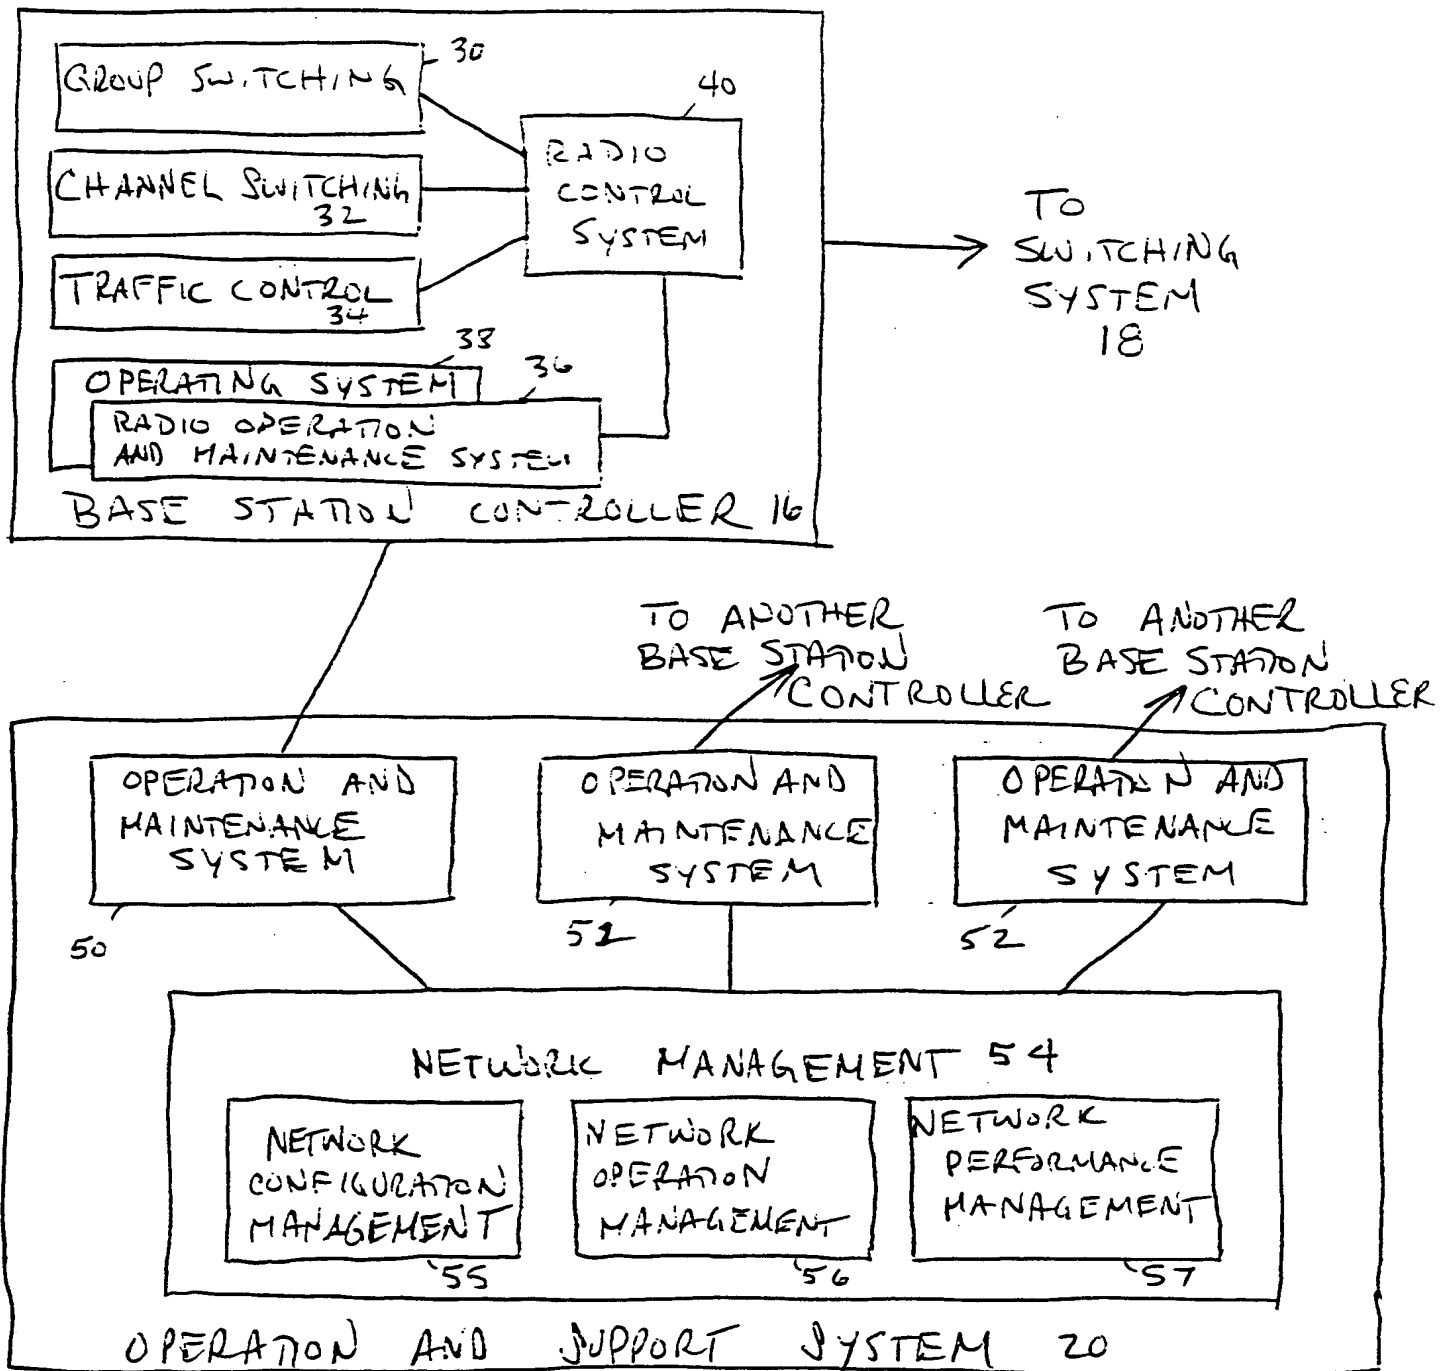 GROUP SWITCHING
30
CHANNEL SWITCHING
32
TRAFFIC CONTROL
34
40
RADIO
CONTROL
SYSTEM
OPERATING SYSTEM
38
RADIO OPERATION
AND MAINTENANCE SYSTEM
36
BASE STATION CONTROLLER 16
TO
SWITCHING
SYSTEM
18
TO ANOTHER
BASE STATION
CONTROLLER
TO ANOTHER
BASE STATION
CONTROLLER
OPERATION AND
MAINTENANCE
SYSTEM
50
OPERATION AND
MAINTENANCE
SYSTEM
52
OPERATION AND
MAINTENANCE
SYSTEM
52
NETWORK MANAGEMENT 54
NETWORK
CONFIGURATION
MANAGEMENT
55
NETWORK
OPERATION
MANAGEMENT
56
NETWORK
PERFORMANCE
MANAGEMENT
57
OPERATION AND SUPPORT SYSTEM 20